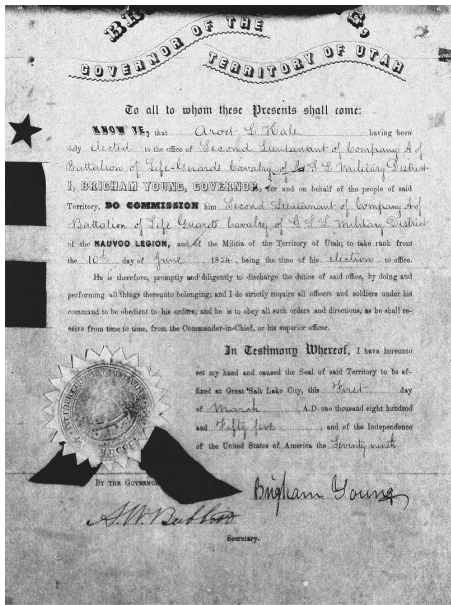 GOVERNOR OF THE
TERRITORY OF UTAH
To all to whom these Presents shall come:
KNOW YE, that Arvet L. Hale having been
duly elected to the office of Second Lieutanant of Company A of
Battalion of Life-Guards Cavalry of G S L Military District
I, BRIGHAM YOUNG, GOVERNOR, for and on behalf of the people of said
Territory, DO COMMISSION him Second Lieutanant of Company A of
Battalion of Life Guards Cavalry of G. S. L. Military District
of the NAUVOO LEGION, and of the Militia of the Territory of Utah; to take rank from
the 10th day of June 1854, being the time of his election to office.
He is therefore, promptly and diligently to discharge the duties of said office, by doing and
performing all things thereunto belonging; and I do strictly require all officers and soldiers under his
command to be obedient to his orders; and he is to obey all such orders and directions, as he shall re-
ceive from time to time, from the Commander-in-Chief, or his superior officer.
In Testimony Whereof, I have hereunto
set my hand and caused the Seal of said Territory to be af-
fixed at Great Salt Lake City, this First day
of March A.D. one thousand eight hundred
and Fifty five, and of the Independence
of the United States of America the Seventy ninth
BY THE GOVERNOR
Brigham Young
A. W. Babbitt
Secretary.